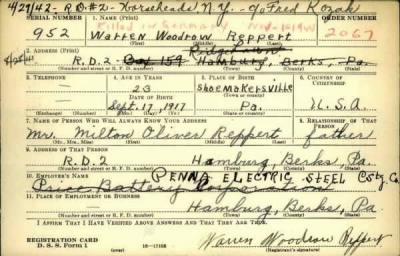 4/27/42 - R.D.#2 - Horseheads N.Y. - c/o Fred Kozak
SERIAL NUMBER 1. NAME (Print) ORDER NUMBER
Killed in Germany
952 Warren Woodrow Reppert 2067
(First) (Middle) (Last)
2. ADDRESS (Print)
R.D.2 Box 159 Hamburg, Berks, Pa.
(Number and street or R. F. D. number) (Town) (County) (State)
3. TELEPHONE 4. AGE IN YEARS 5. PLACE OF BIRTH 6. COUNTRY OF CITIZENSHIP
23 Shoemakersville
DATE OF BIRTH
Sept. 17, 1917 Pa. U.S.A.
(Exchange) (Number) (Mo.) (Day) (Yr.) (State or country)
7. NAME OF PERSON WHO WILL ALWAYS KNOW YOUR ADDRESS 8. RELATIONSHIP OF THAT PERSON
Mr. Milton Oliver Reppert father
(Mr., Mrs., Miss) (First) (Middle) (Last)
9. ADDRESS OF THAT PERSON
R.D.2 Hamburg, Berks, Pa.
(Number and street or R. F. D. number) (Town) (County) (State)
10. EMPLOYER'S NAME
PENNA ELECTRIC STEEL Cstg. Co
Price Battery Corporation
11. PLACE OF EMPLOYMENT OR BUSINESS
Hamburg, Berks, Pa.
(Number and street or R. F. D. number) (Town) (County) (State)
I AFFIRM THAT I HAVE VERIFIED ABOVE ANSWERS AND THAT THEY ARE TRUE.
REGISTRATION CARD
D. S. S. Form 1 Warren Woodrow Reppert
(Registrant's signature)